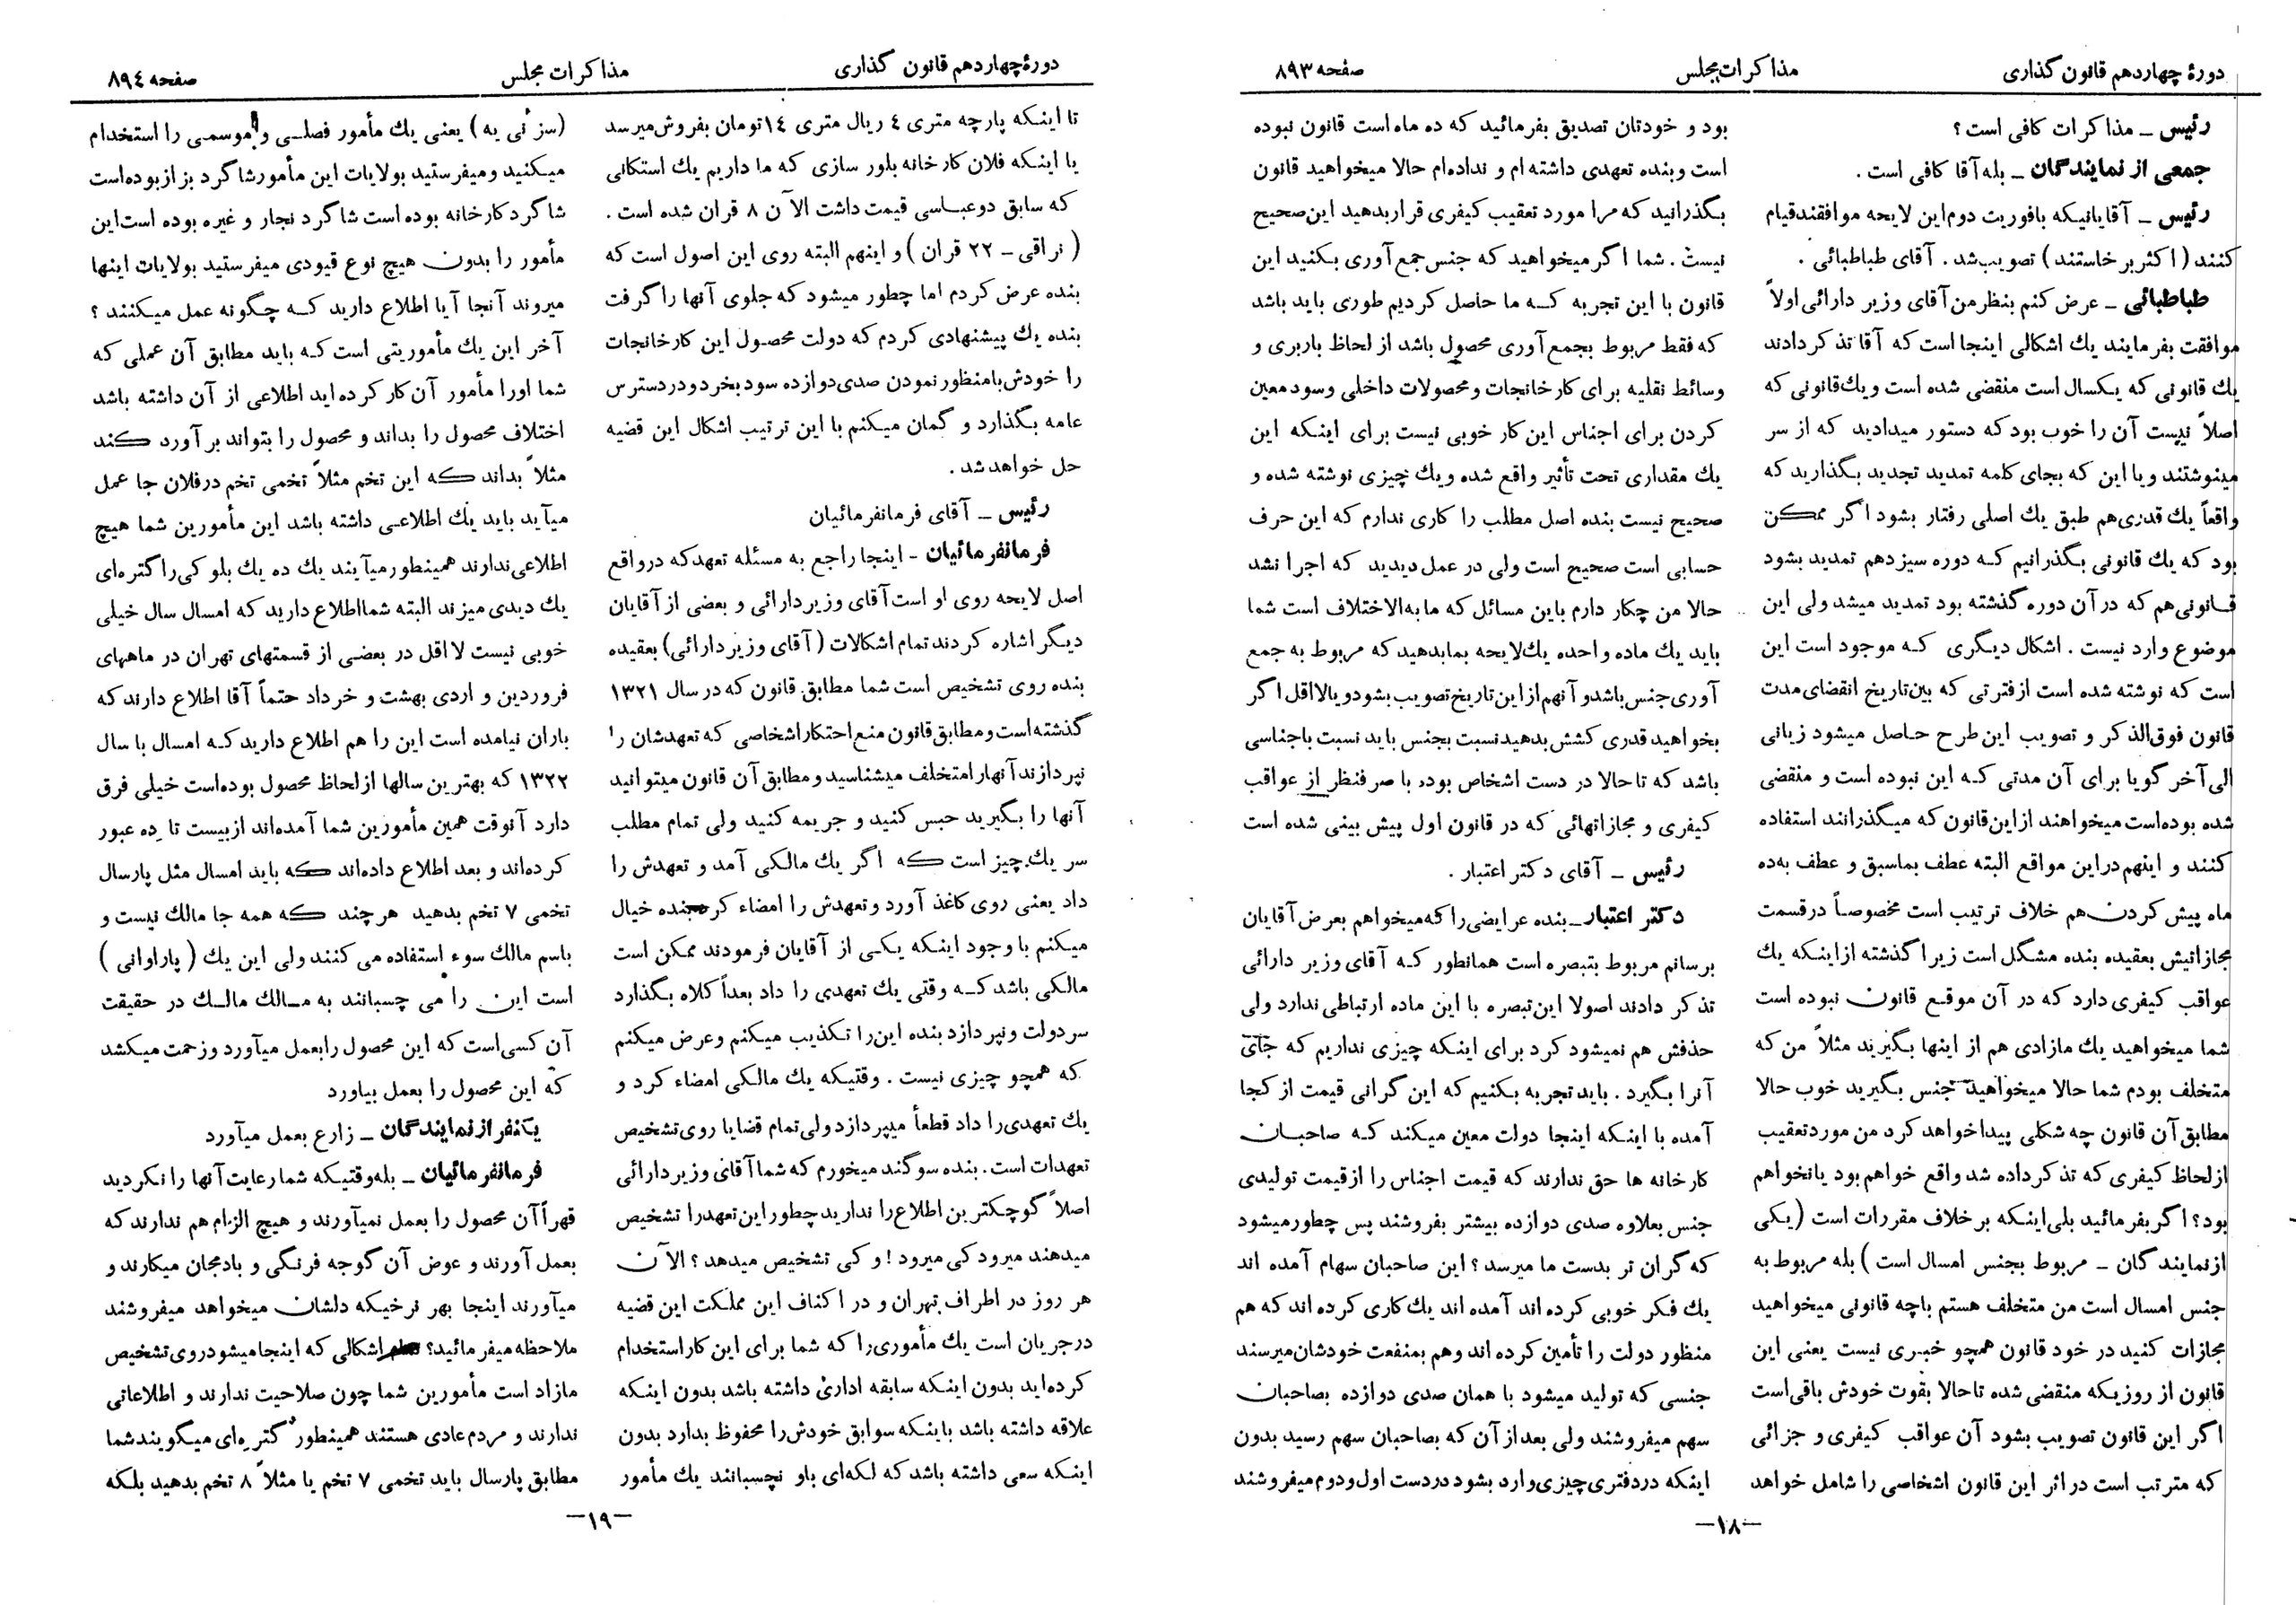 دورهٔ چهاردهم قانون گذاری
مذاکرات مجلس
صفحه ۸۹۳
رئیس ــ مذاکرات کافی است ؟
جمعی از نمایندگان ــ بله آقا کافی است .
رئیس ــ آقایانیکه بافوریت دوم این لایحه موافقند قیام
کنند ( اکثر برخاستند ) تصویب شد . آقای طباطبائی .
طباطبائی ــ عرض کنم بنظر من آقای وزیر دارائی اولاً
موافقت بفرمایند یك اشکالی اینجا است که آقا تذکر دادند
یك قانونی که یکسال است منقضی شده است و یك قانونی که
اصلاً نیست آن را خوب بود که دستور میدادید که از سر
مینوشتند و یا این که بجای کلمه تمدید تجدید بگذارید که
واقعاً یك قدری هم طبق یك اصلی رفتار بشود اگر ممکن
بود که یك قانونی بگذرانیم که دوره سیزدهم تمدید بشود
قانونی هم که در آن دوره گذشته بود تمدید میشد ولی این
موضوع وارد نیست . اشکال دیگری که موجود است این
است که نوشته شده است از فترتی که بین تاریخ انقضای مدت
قانون فوق‌الذکر و تصویب این طرح حاصل میشود زیانی
الی آخر گویا برای آن مدتی که این نبوده است و منقضی
شده بوده‌است میخواهند از این قانون که میگذرانند استفاده
کنند و اینهم در این مواقع البته عطف بماسبق و عطف به‌ده
ماه پیش کردن هم خلاف ترتیب است مخصوصاً در قسمت
مجازاتیش بعقیده بنده مشگل است زیرا گذشته از اینکه یك
عواقب کیفری دارد که در آن موقع قانون نبوده است
شما میخواهید یك مازادی هم از اینها بگیرید مثلاً من که
متخلف بودم شما حالا میخواهید جنس بگیرید خوب حالا
مطابق آن قانون چه شکلی پیدا خواهد کرد من مورد تعقیب
از لحاظ کیفری که تذکر داده شد واقع خواهم بود یا نخواهم
بود؟ اگر بفرمائید بلی اینکه بر خلاف مقررات است (یکی
از نمایندگان ــ مربوط بجنس امسال است ) بله مربوط به
جنس امسال است من متخلف هستم با چه قانونی میخواهید
مجازات کنید در خود قانون همچو خبری نیست یعنی این
قانون از روزیکه منقضی شده تا حالا بقوت خودش باقی است
اگر این قانون تصویب بشود آن عواقب کیفری و جزائی
که مترتب است در اثر این قانون اشخاصی را شامل خواهد
بود و خودتان تصدیق بفرمائید که ده ماه است قانون نبوده
است و بنده تعهدی داشته ام و نداده‌ام حالا میخواهید قانون
بگذرانید که مرا مورد تعقیب کیفری قرار بدهید این صحیح
نیست . شما اگر میخواهید که جنس جمع آوری بکنید این
قانون با این تجربه که ما حاصل کردیم طوری باید باشد
که فقط مربوط بجمع آوری محصول باشد از لحاظ باربری و
وسائط نقلیه برای کارخانجات و محصولات داخلی و سود معین
کردن برای اجناس این کار خوبی نیست برای اینکه این
یك مقداری تحت تأثیر واقع شده و یك چیزی نوشته شده و
صحیح نیست بنده اصل مطلب را کاری ندارم که این حرف
حسابی است صحیح است ولی در عمل دیدید که اجرا نشد
حالا من چکار دارم باین مسائل که ما به‌الاختلاف است شما
باید یك ماده واحده یك لایحه بما بدهید که مربوط به جمع
آوری جنس باشد و آنهم از این تاریخ تصویب بشود و یا لااقل اگر
بخواهید قدری کشش بدهید نسبت بجنس باید نسبت با جناسی
باشد که تا حالا در دست اشخاص بوده با صرفنظر از عواقب
کیفری و مجازاتهائی که در قانون اول پیش بینی شده است
رئیس ــ آقای دکتر اعتبار .
دکتر اعتبار ــ بنده عرایضی را که میخواهم بعرض آقایان
برسانم مربوط بتبصره است همانطور که آقای وزیر دارائی
تذکر دادند اصولا این تبصره با این ماده ارتباطی ندارد ولی
حذفش هم نمیشود کرد برای اینکه چیزی نداریم که جای
آنرا بگیرد . باید تجربه بکنیم که این گرانی قیمت از کجا
آمده با اینکه اینجا دولت معین میکند که صاحبان
کارخانه ها حق ندارند که قیمت اجناس را از قیمت تولیدی
جنس بعلاوه صدی دوازده بیشتر بفروشند پس چطور میشود
که گران تر بدست ما میرسد ؟ این صاحبان سهام آمده اند
یك فکر خوبی کرده اند آمده اند یك کاری کرده اند که هم
منظور دولت را تأمین کرده اند وهم بمنفعت خودشان میرسند
جنسی که تولید میشود با همان صدی دوازده بصاحبان
سهم میفروشند ولی بعد از آن که بصاحبان سهم رسید بدون
اینکه در دفتری چیزی وارد بشود در دست اول و دوم میفروشند
ــ۱۸ــ
دورهٔ چهاردهم قانون گذاری
مذاکرات مجلس
صفحه ۸۹٤
تا اینکه پارچه متری ٤ ریال متری ۱٤ تومان بفروش میرسد
یا اینکه فلان کارخانه بلور سازی که ما داریم یك استکانی
که سابق دوعباسی قیمت داشت الآن ۸ قران شده است .
( نراقی ــ ۲۲ قران ) و اینهم البته روی این اصول است که
بنده عرض کردم اما چطور میشود که جلوی آنها را گرفت
بنده یك پیشنهادی کردم که دولت محصول این کارخانجات
را خودش با منظور نمودن صدی دوازده سود بخرد و در دسترس
عامه بگذارد و گمان میکنم با این ترتیب اشکال این قضیه
حل خواهد شد .
رئیس ــ آقای فرمانفرمائیان
فرمانفرمائیان ــ اینجا راجع به مسئله تعهد که در واقع
اصل لایحه روی او است آقای وزیر دارائی و بعضی از آقایان
دیگر اشاره کردند تمام اشکالات ( آقای وزیر دارائی ) بعقیده
بنده روی تشخیص است شما مطابق قانون که در سال ۱۳۲۱
گذشته است و مطابق قانون منع احتکار اشخاصی که تعهدشان را
نپردازند آنهارا متخلف میشناسید و مطابق آن قانون میتوانید
آنها را بگیرید حبس کنید و جریمه کنید ولی تمام مطلب
سر یك چیز است که اگر یك مالکی آمد و تعهدش را
داد یعنی روی کاغذ آورد و تعهدش را امضاء کرد بنده خیال
میکنم با وجود اینکه یکی از آقایان فرمودند ممکن است
مالکی باشد که وقتی یك تعهدی را داد بعداً کلاه بگذارد
سر دولت و نپردازد بنده این را تکذیب میکنم و عرض میکنم
که همچو چیزی نیست . وقتیکه یك مالکی امضاء کرد و
یك تعهدی را داد قطعاً میپردازد ولی تمام قضایا روی تشخیص
تعهدات است . بنده سوگند میخورم که شما آقای وزیر دارائی
اصلاً کوچکترین اطلاع را ندارید چطور این تعهد را تشخیص
میدهند میرود کی میرود ! و کی تشخیص میدهد ؟ الآن
هر روز در اطراف تهران و در اکناف این مملکت این قضیه
در جریان است یك مأموری را که شما برای این کار استخدام
کرده‌اید بدون اینکه سابقه اداری داشته باشد بدون اینکه
علاقه داشته باشد باینکه سوابق خودش را محفوظ بدارد بدون
اینکه سعی داشته باشد که لکه‌ای باو نچسبانند یك مأمور
(سزنی یه) یعنی یك مأمور فصلی و موسمی را استخدام
میکنید و میفرستید بولایات این مأمور شاگرد بزاز بوده‌است
شاگرد کارخانه بوده است شاگرد نجار و غیره بوده است این
مأمور را بدون هیچ نوع قیودی میفرستید بولایات اینها
میروند آنجا آیا اطلاع دارید که چگونه عمل میکنند ؟
آخر این یك مأموریتی است که باید مطابق آن عملی که
شما اورا مأمور آن کار کرده‌اید اطلاعی از آن داشته باشد
اختلاف محصول را بداند و محصول را بتواند برآورد کند
مثلاً بداند که این تخم مثلاً تخمی تخم در فلان جا عمل
میآید باید یك اطلاعی داشته باشد این مأمورین شما هیچ
اطلاعی ندارند همینطور میآیند یك ده یك بلوکی را گتره‌ای
یك دیدی میزند البته شما اطلاع دارید که امسال سال خیلی
خوبی نیست لااقل در بعضی از قسمتهای تهران در ماههای
فروردین و اردی بهشت و خرداد حتماً آقا اطلاع دارند که
باران نیامده است این را هم اطلاع دارید که امسال با سال
۱۳۲۲ که بهترین سالها از لحاظ محصول بوده‌است خیلی فرق
دارد آنوقت همین مأمورین شما آمده‌اند از بیست تا ده عبور
کرده‌اند و بعد اطلاع داده‌اند که باید امسال مثل پارسال
تخمی ۷ تخم بدهید هرچند که همه جا مالك نیست و
باسم مالك سوء استفاده می کنند ولی این یك ( پاراوانی )
است این را می چسبانند به مالك مالك در حقیقت
آن کسی است که این محصول را بعمل میآورد و زحمت میکشد
که این محصول را بعمل بیاورد
یکنفر از نمایندگان ــ زارع بعمل میآورد
فرمانفرمائیان ــ بله وقتیکه شما رعایت آنها را نکردید
قهراً آن محصول را بعمل نمیآورند و هیچ الزام هم ندارند که
بعمل آورند و عوض آن گوجه فرنگی و بادمجان میکارند و
میآورند اینجا بهر نرخیکه دلشان میخواهد میفروشند
ملاحظه میفرمائید؟ اشکالی که اینجا میشود روی تشخیص
مازاد است مأمورین شما چون صلاحیت ندارند و اطلاعاتی
ندارند و مردم عادی هستند همینطور گتره‌ای میگویند شما
مطابق پارسال باید تخمی ۷ تخم یا مثلاً ۸ تخم بدهید بلکه
ــ۱۹ــ